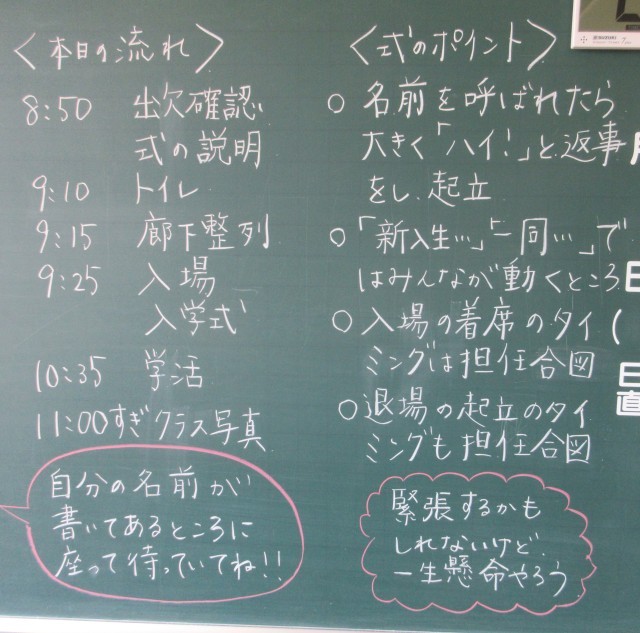 〈本日の流れ〉
8:50 出欠確認
式の説明
9:10 トイレ
9:15 廊下整列
9:25 入場
入学式
10:35 学活
11:00すぎクラス写真
自分の名前が
書いてあるところに
座って待っていてね!!
〈式のポイント〉
○名前を呼ばれたら
大きく「ハイ!」と返事
をし、起立
○「新入生…」「一同…」で
はみんなが動くところ
○入場の着席のタイ
ミングは担任合図
○退場の起立のタイ
ミングも担任合図
緊張するかも
しれないけど、
一生懸命やろう
日
日
直